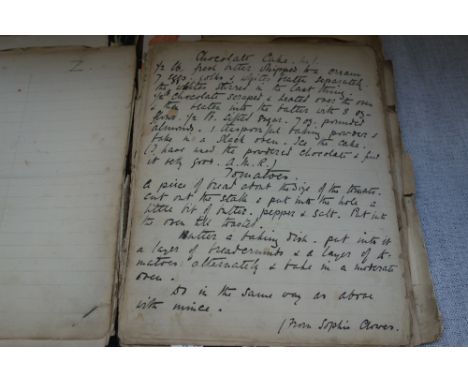 Z
Chocolate Cake.
½ lb. fresh butter whipped to a cream
7 eggs. yolks & whites beaten separately
the whites stirred in the last thing.
½ lb chocolate scraped & heated over the oven
& then beaten into the batter with 3 oz
flour. ½ lb. sifted sugar. 7 oz. pounded
almonds. 1 teaspoonful baking powder &
bake in a slack oven. Ice the cake.
(I have used the powdered chocolate & find
it very good. A.M.R.)
Tomatoes.
A piece of bread about the size of the tomato.
Cut out the stalk & put into the hole a
little bit of butter. pepper & salt. Put into
the oven till toasted.
Butter a baking dish. put into it
a layer of breadcrumbs & a layer of to-
matoes alternately & bake in a moderate
oven.
Do in the same way as above
with mince.
(From Sophie